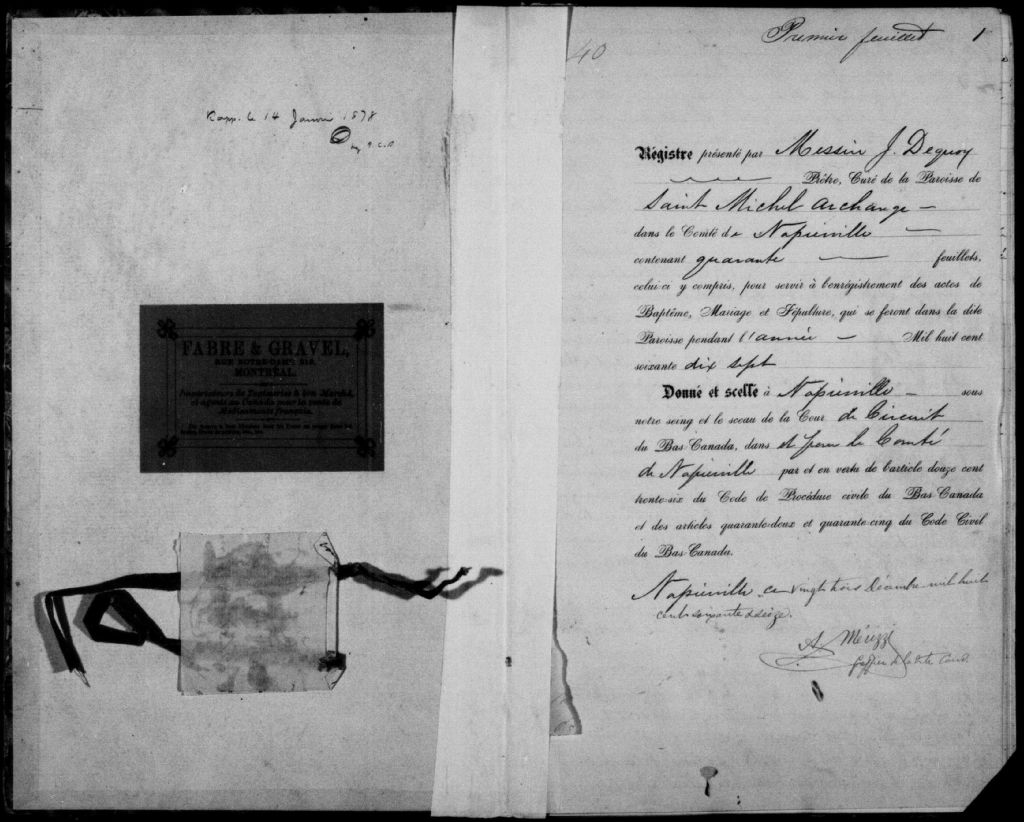 Rapp. le 14 Janvier 1878
FABRE & GRAVEL,
RUE NOTRE-DAME, 219,
MONTREAL.
Importateurs de Tapisseries à bon Marché,
et agents au Canada pour la vente de
Médicaments français.
40
Premier feuillet 1
Régistre présenté par Messire J. Dequoy
Prêtre, Curé de la Paroisse de
Saint Michel Archange —
dans le Comté de Napierville —
contenant quarante — feuillets,
celui-ci y compris, pour servir à l'enrégistrement des actes de
Baptême, Mariage et Sépulture, qui se feront dans la dite
Paroisse pendant l'année — Mil huit cent
soixante dix sept
Donné et scellé à Napierville — sous
notre seing et le sceau de la Cour de Circuit
du Bas-Canada, dans et pour le Comté
de Napierville par et en vertu de l'article douze cent
trente-six du Code de Procédure civile du Bas-Canada
et des articles quarante-deux et quarante-cinq du Code Civil
du Bas-Canada.
Napierville ce vingt trois Décembre mil huit
cent soixante & seize.
A. Merizzi
Greffier de la dite Cour